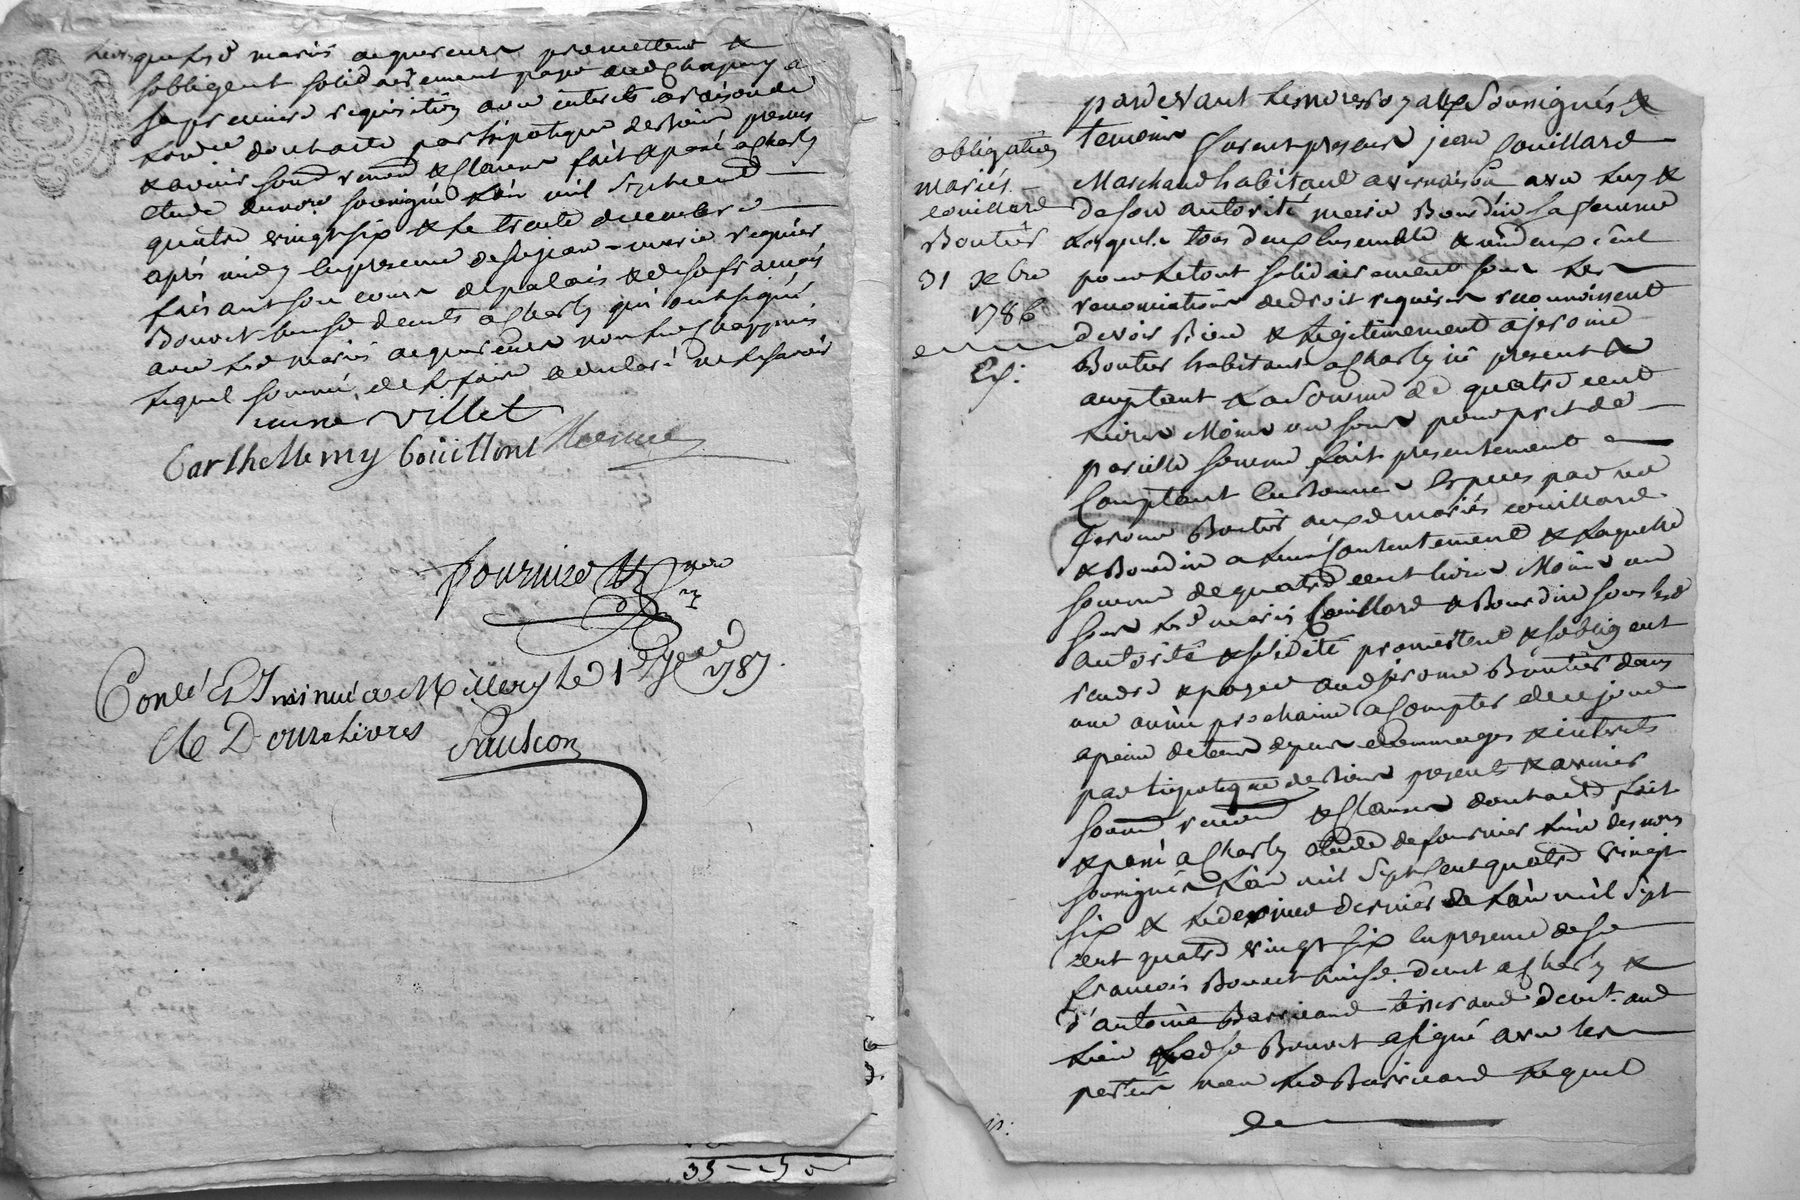 lesquels d mariés acquereurs promettent &
sobligent solidairement payer aud Chapuy a
sa premiere requisition avec interets a raison de
lordce dont acte par hipotique de biens presens
& avenir soumd renond & clauses fait & passé a Charly
etude du nore soussigné l'an mil sept cent
quatre vingt six & le trente decembre
après midy en presence de sr jean-marie regnier
faisant son cours de palais & de sr francois
Bouvet huisr demts a Charly qui ont signé
avec les d mariés acquereurs non led Chappuis
lequel sommé de le faire a declaré ne le scavoir
jeanne villet
barthellemy Goüillont
fournier nre
Conlé Et Insinué a Millery le 1er Jer 1787.
Re Douze livres
Paulson
35
obligation
mariés
couillard
Boutier
31 xbre
1786
Ex:
pardevant les nores royaux soussignés &
temoins furent presens jean Couillard
Marchand habitant a vernaison avec luy &
de son autorité marie Bourdin sa femme
lesquels tous deux ensemble & un deux seul
pour le tout solidairement sous les
renonciations de droit requises reconnoissent
devoir Bien & legitimement a jerome
Boutier habitant a Charly icy present &
acceptant la somme de quatre cent
livres Moins un sous pour pret de
pareille somme fait presentement
Comptant en bonnes especes par led
Jerome Boutier aux d mariés couillard
& Bourdin a leur contentement & laquelle
somme de quatre cent livres Moins un
sous les d mariés Couillard & Bourdin sous lesd
autorité & solidité promettent & sobligent
rendre & payer aud jerome Boutier dans
une année prochaine a Compter de ce jour
a peine de tous depens dommages & interets
par hipotique de biens presents & avenir
soumd renond & clauses dont acte fait
& passé a Charly etude de fournier l'un des nores
soussignés l'an mil sept cent quatre vingt
six & le dernier de l'an mil sept
cent quatre vingt six en presence de sr
francois Bouvet huisr demt a Charly &
d'antoine Barricand tisserand demt aud
lieu led sr Bouvet a signé avec les
parties non led Barricand lequel
de